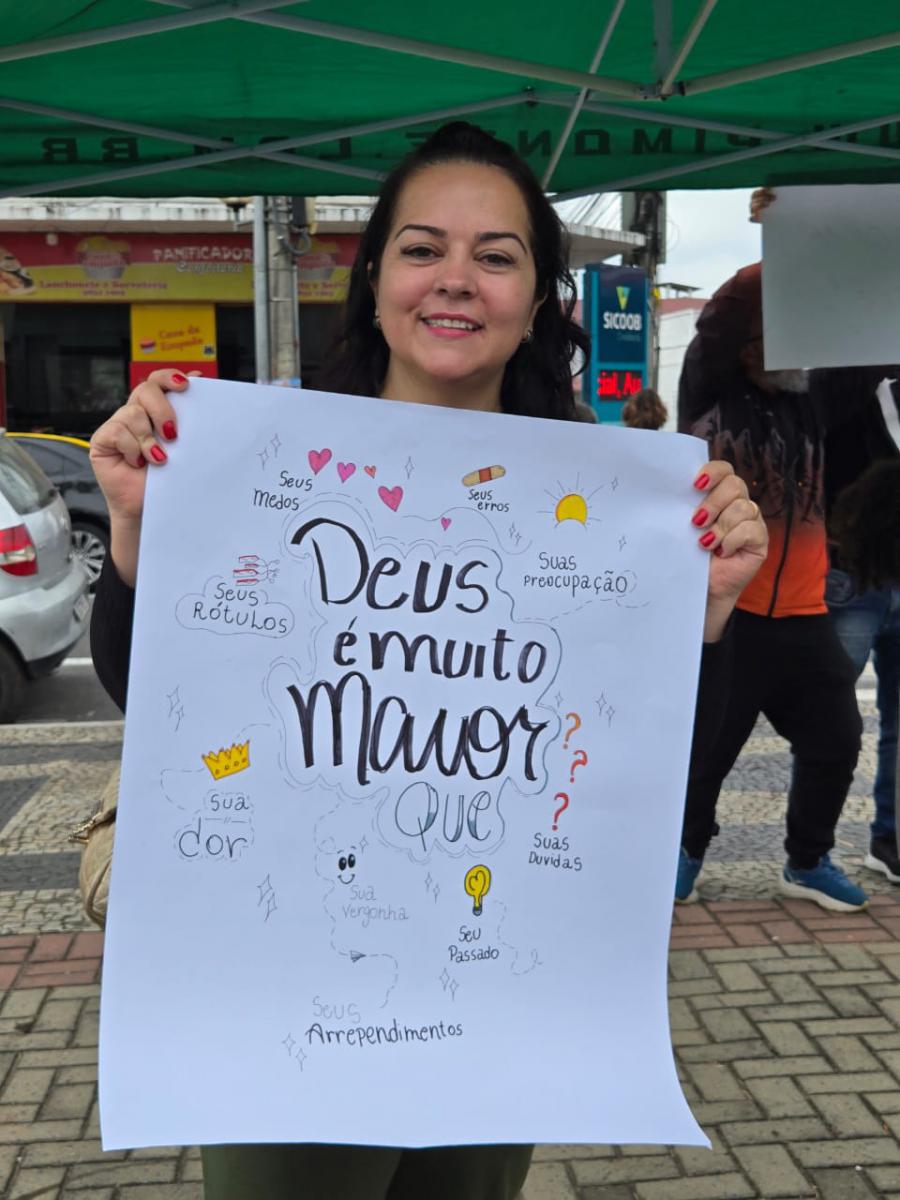 PANIFICADORA
Lanchonete e Sorveteria
Casa da
Empada
SICOOB
Seus
Medos
Seus
erros
Suas
Preocupação
Seus
Rótulos
Deus
é muito
Maior
Que
Sua
dor
Suas
Duvidas
Sua
Vergonha
Seu
Passado
Seus
Arrependimentos